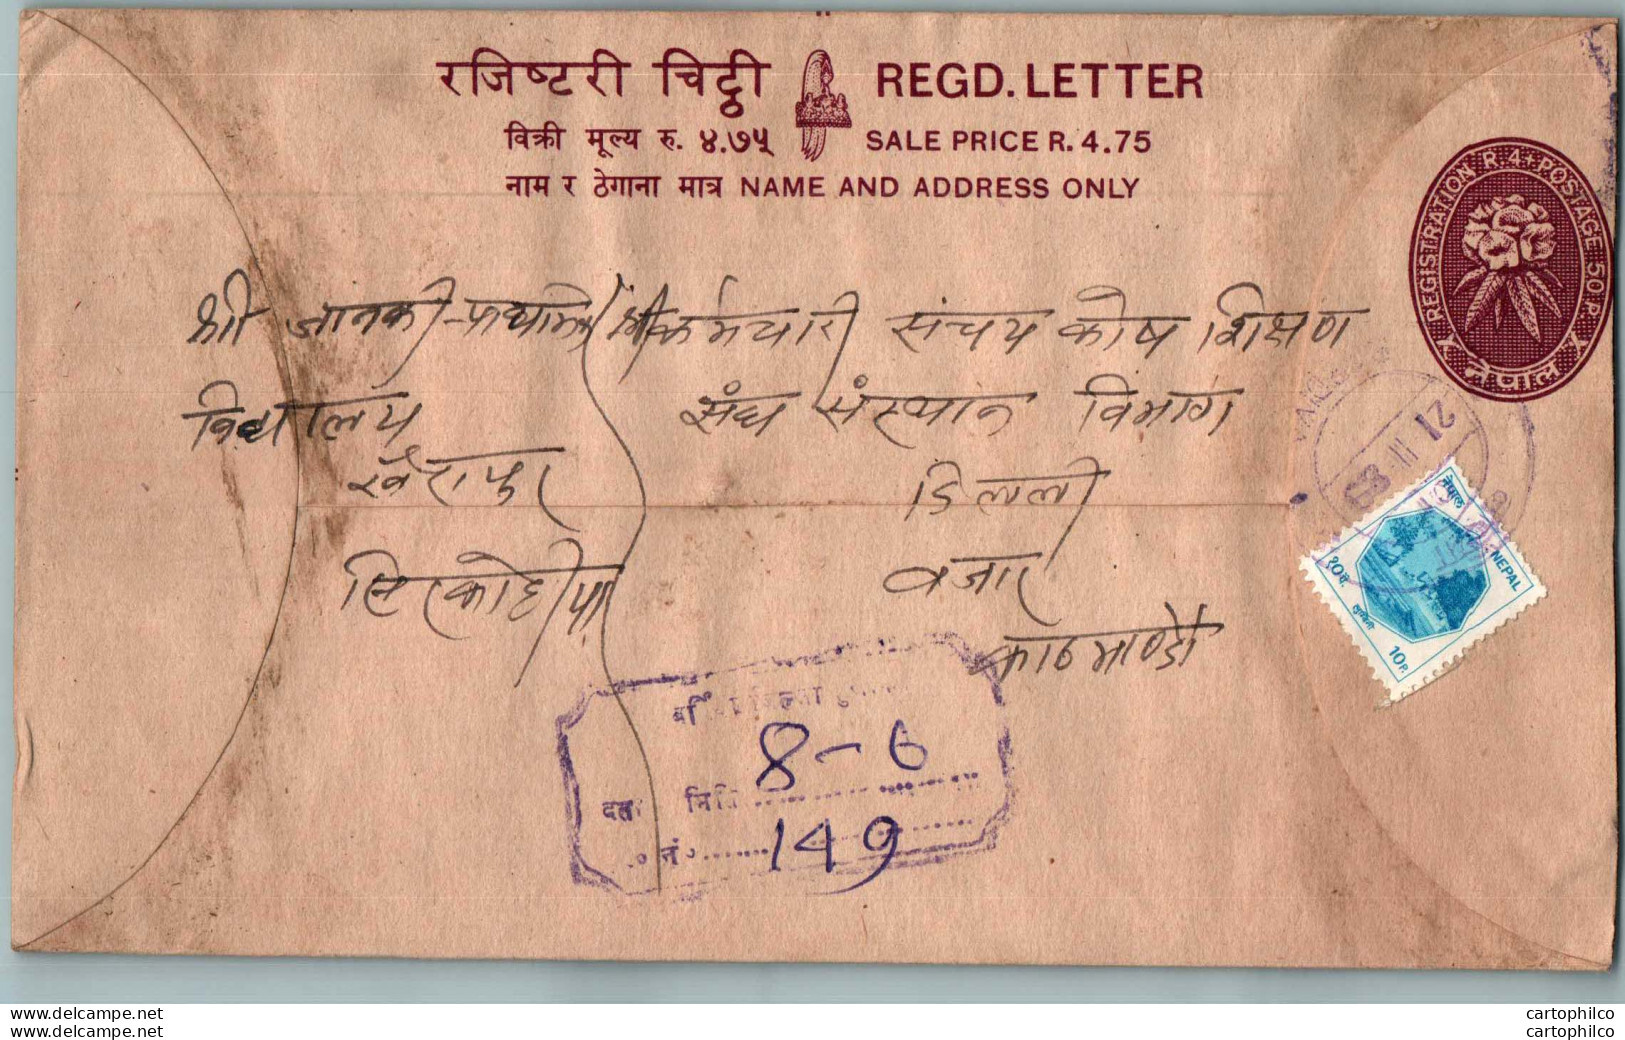 रजिष्टरी चिट्ठी REGD. LETTER
विक्री मूल्य रु. ४.७५ SALE PRICE R. 4.75
नाम र ठेगाना मात्र NAME AND ADDRESS ONLY
REGISTRATION R. 4+POSTAGE 50 P.
नेपाल
श्री जानकी प्राथमिक
विद्यालय
श्री कर्मचारी संचय कोष शिक्षण
संघ संस्थान विभाग
डिल्ली
वजार
काठमाण्डौ
21 III 83
नेपाल NEPAL
१०पै. 10P.
8-6
मिति
नं० 149
www.delcampe.net
www.delcampe.net
cartophilco
cartophilco